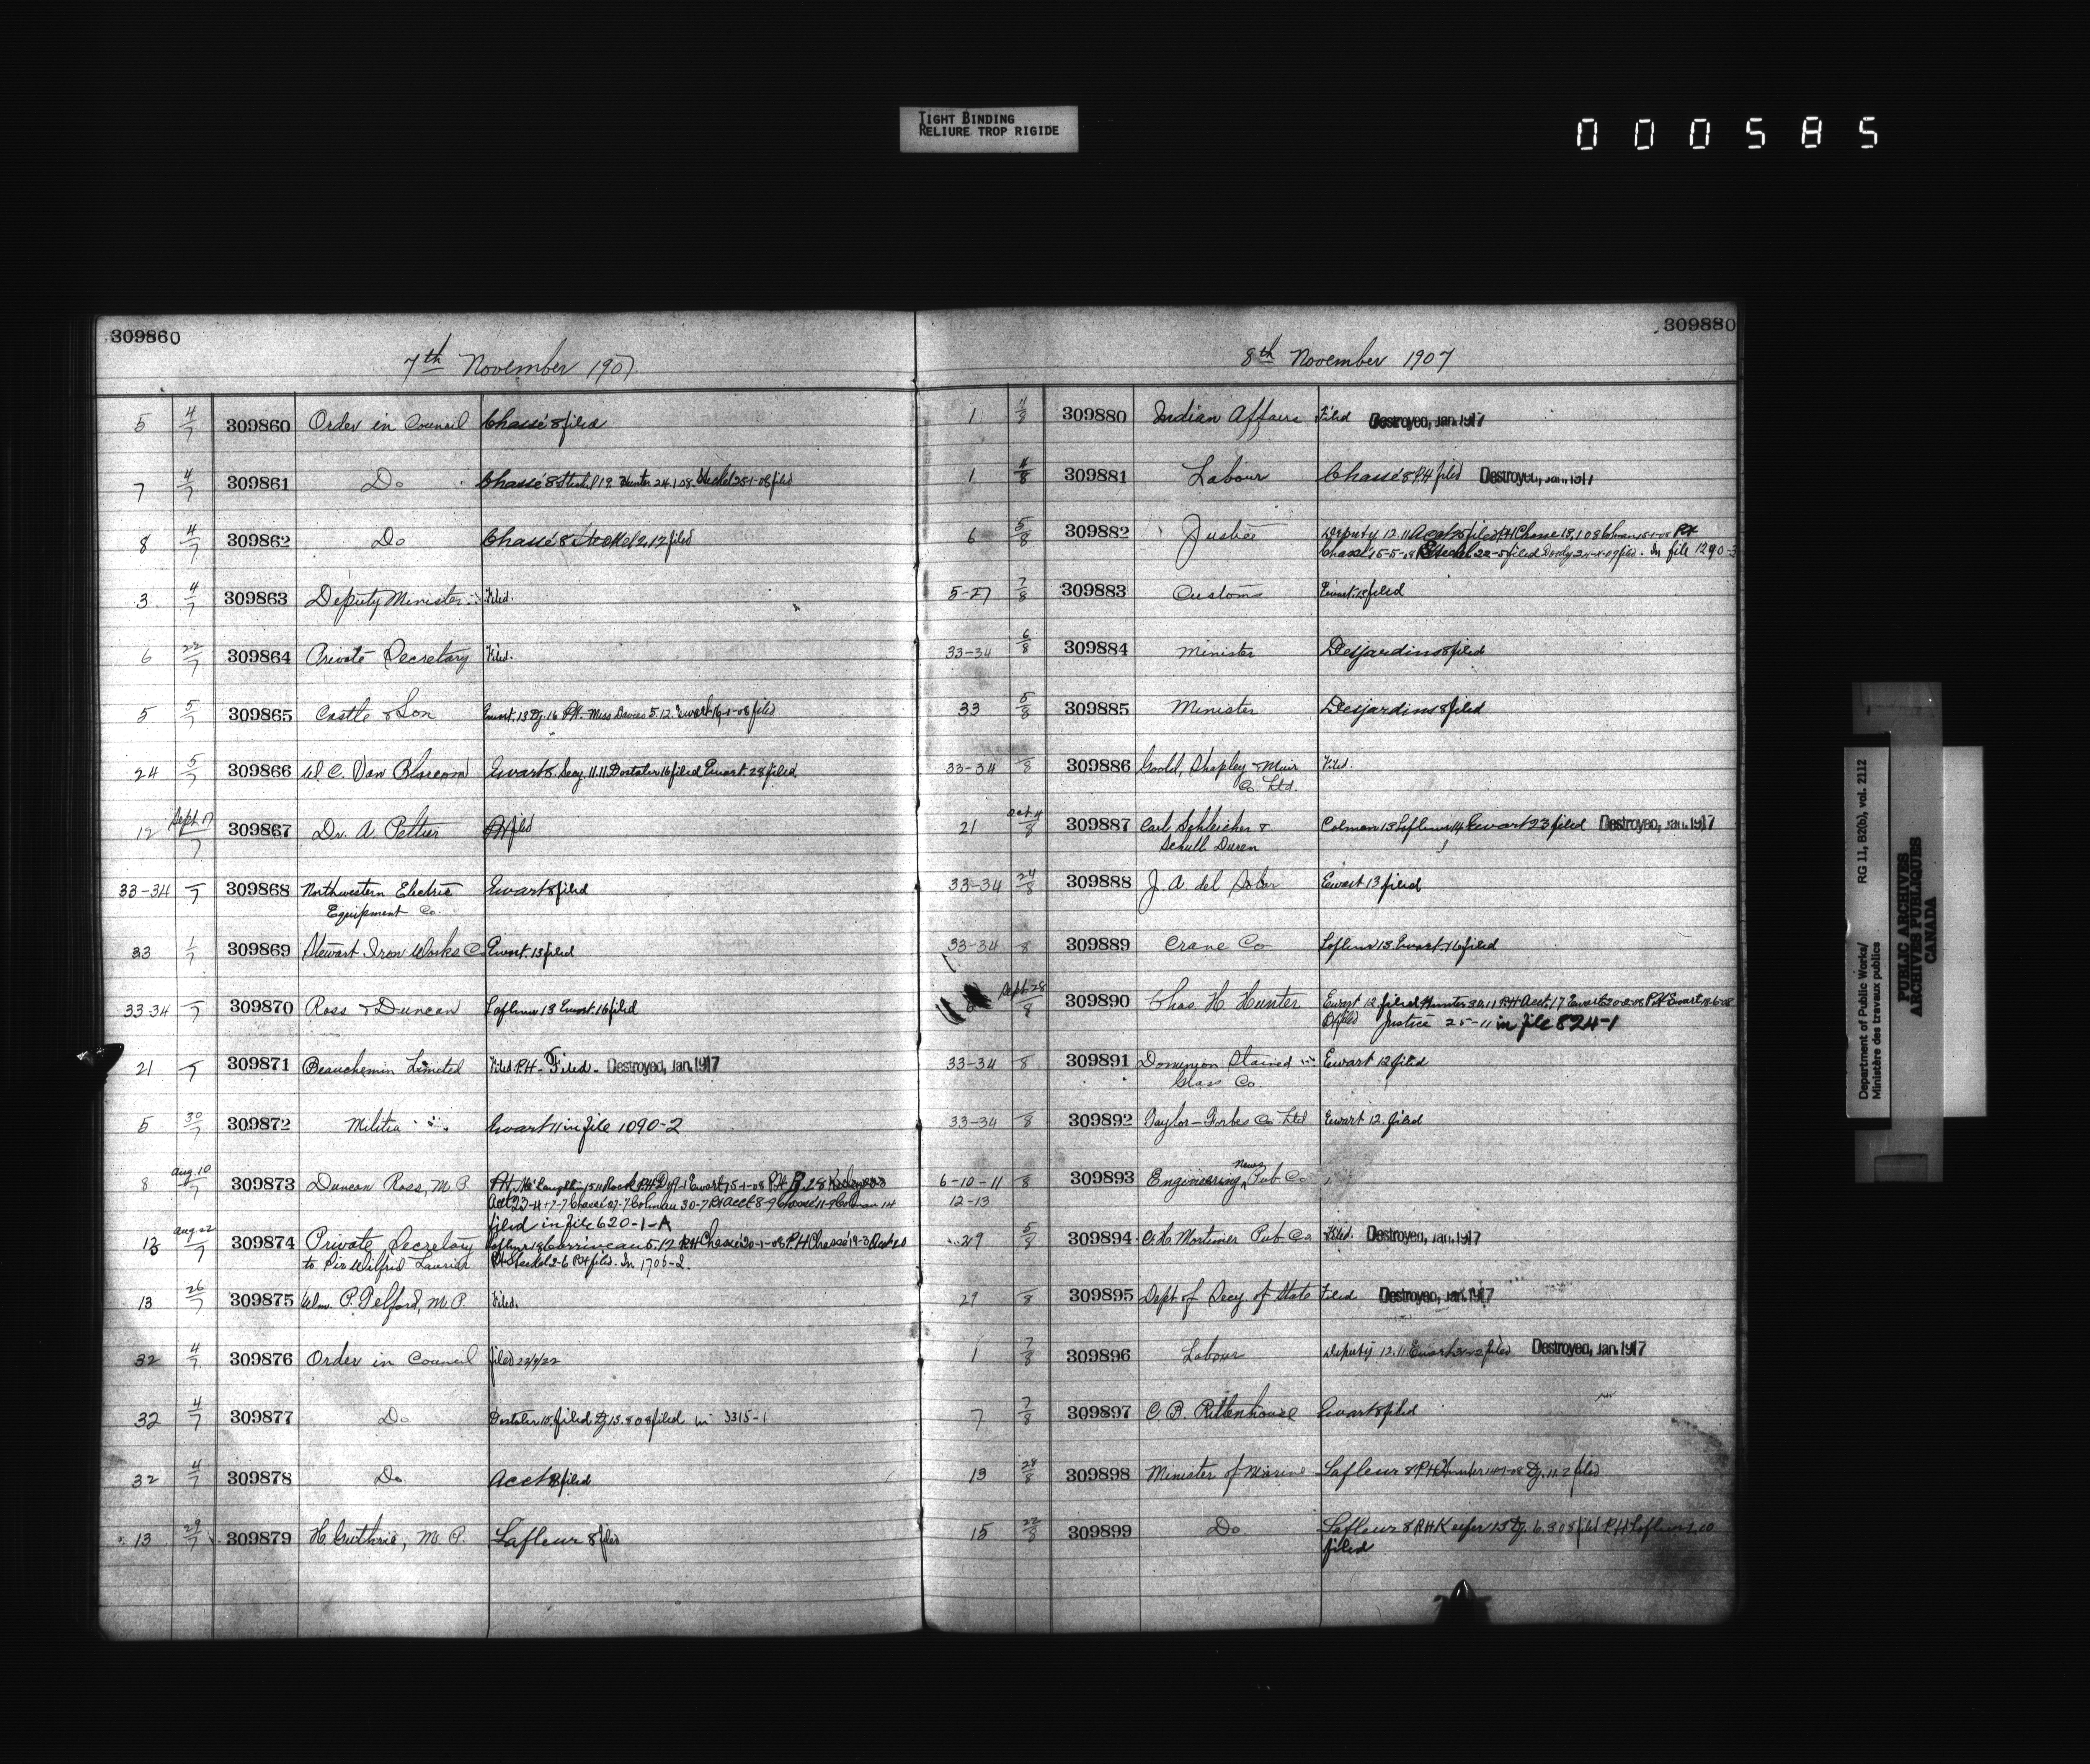 TIGHT BINDING
RELIURE TROP RIGIDE
000585
309860
7th November 1907
5 4/7 309860 Order in Council Chassé 8 filed
7 4/7 309861 Do Chassé 8 Steckel 19. Hunter 24.1.08. Steckel 25-1-08 filed
8 4/7 309862 Do Chassé 8 Steckel 2.12 filed
3 4/7 309863 Deputy Minister Filed.
6 22/7 309864 Private Secretary Filed.
5 5/7 309865 Castle & Son Ewart. 13 Dy. 16 P.H. Miss Davies 5.12. Ewart 16-1-08 filed
24 5/7 309866 W. C. Van Blarcom Ewart 8. Secy. 11.11 Dostaler 16 filed Ewart. 28 filed
12 Sept 17/7 309867 Dr. A. Pettier PH filed
33-34 /7 309868 Northwestern Electric Ewart 8 filed
Equipment Co.
33 1/7 309869 Stewart Iron Works Co Ewart. 13 filed
33-34 /7 309870 Ross & Duncan Lafleur 13 Ewart. 16 filed
21 /7 309871 Beauchemin Limited Filed. P.H- Filed. Destroyed, Jan. 1917
5 30/7 309872 Militia Ewart 11 in file 1090-2
8 Aug. 10/7 309873 Duncan Ross, M. P. PH. McLaughlin 15.11 Rock PH Ewart 15-1-08 P.H.
Acct 23-4 Chassé 27-7 Colman 30-7 PH Acct 8-9 Chassé 11-9 Colman 14
filed in file 620-1-A
13 Aug 22/7 309874 Private Secretary Lafleur 18 Corriveau 5.12 PH Chassé 20-1-08 P.H Chassé 19-3
to Sir Wilfrid Laurier PH Steckel 2-6 PH filed. In 1706-2.
13 26/7 309875 Wm. P. Telford, M. P. Filed.
32 4/7 309876 Order in Council filed 22/9/22
32 4/7 309877 Do Dostaler 15. filed Dy 13.8 08 filed in 3315-1
32 4/7 309878 Do Acct 8 filed
13 29/7 309879 H. Guthrie, M. P. Lafleur 8 filed
309880
8th November 1907
1 4/8 309880 Indian Affairs Filed Destroyed, Jan. 1917
1 4/8 309881 Labour Chassé 8 PH filed Destroyed, Jan. 1917
6 5/8 309882 Justice Deputy 12.11 Acct 25 filed PH Chasse 18.1 08 Colman 15-1-08 PH
Chassé 15-5-08 Steckel 22-5 filed 24-4-09 filed. In file 1290-3
5-27 7/8 309883 Customs Ewart. 13 filed
33-34 6/8 309884 Minister Desjardins 8 filed
33 5/8 309885 Minister Desjardins 8 filed
33-34 /8 309886 Goold, Shapley & Muir Filed.
Co. Ltd.
21 Oct. 4/8 309887 Carl Schleicher & Colman 13 Lafleur 14 Ewart 23 filed Destroyed, Jan. 1917
Schull Duren
33-34 24/8 309888 J. A. del Solar Ewart 13 filed
33-34 /8 309889 Crane Co Lafleur 13. Ewart. 16 filed
Sept 28/8 309890 Chas. H. Hunter Ewart 12 filed Hunter 30.11 P.H Acct. 17 Ewart P.H Ewart
PH filed Justice 25-11 in file 824-1
33-34 /8 309891 Dominion Stained Ewart 12 filed
Glass Co.
33-34 /8 309892 Taylor-Forbes Co. Ltd Ewart 12. filed
6-10-11 /8 309893 Engineering News Pub Co
12-13
29 5/8 309894 C. H. Mortimer Pub Co Filed. Destroyed, Jan. 1917
29 /8 309895 Dept of Secy of State Filed Destroyed, Jan. 1917
1 7/8 309896 Labour Deputy 12.11. Ewart filed Destroyed, Jan. 1917
7 7/8 309897 C. B. Rittenhouse Ewart 8 filed
13 28/8 309898 Minister of Marine Lafleur 8 PH Hunter Dy. 11.2 filed
15 22/8 309899 Do Lafleur 8 PH Keefer 13 Dy. 6.8 08 filed P.H Lafleur 1.10
filed
Department of Public Works/
Ministère des travaux publics
RG 11, B2(b), vol. 2112
PUBLIC ARCHIVES
ARCHIVES PUBLIQUES
CANADA